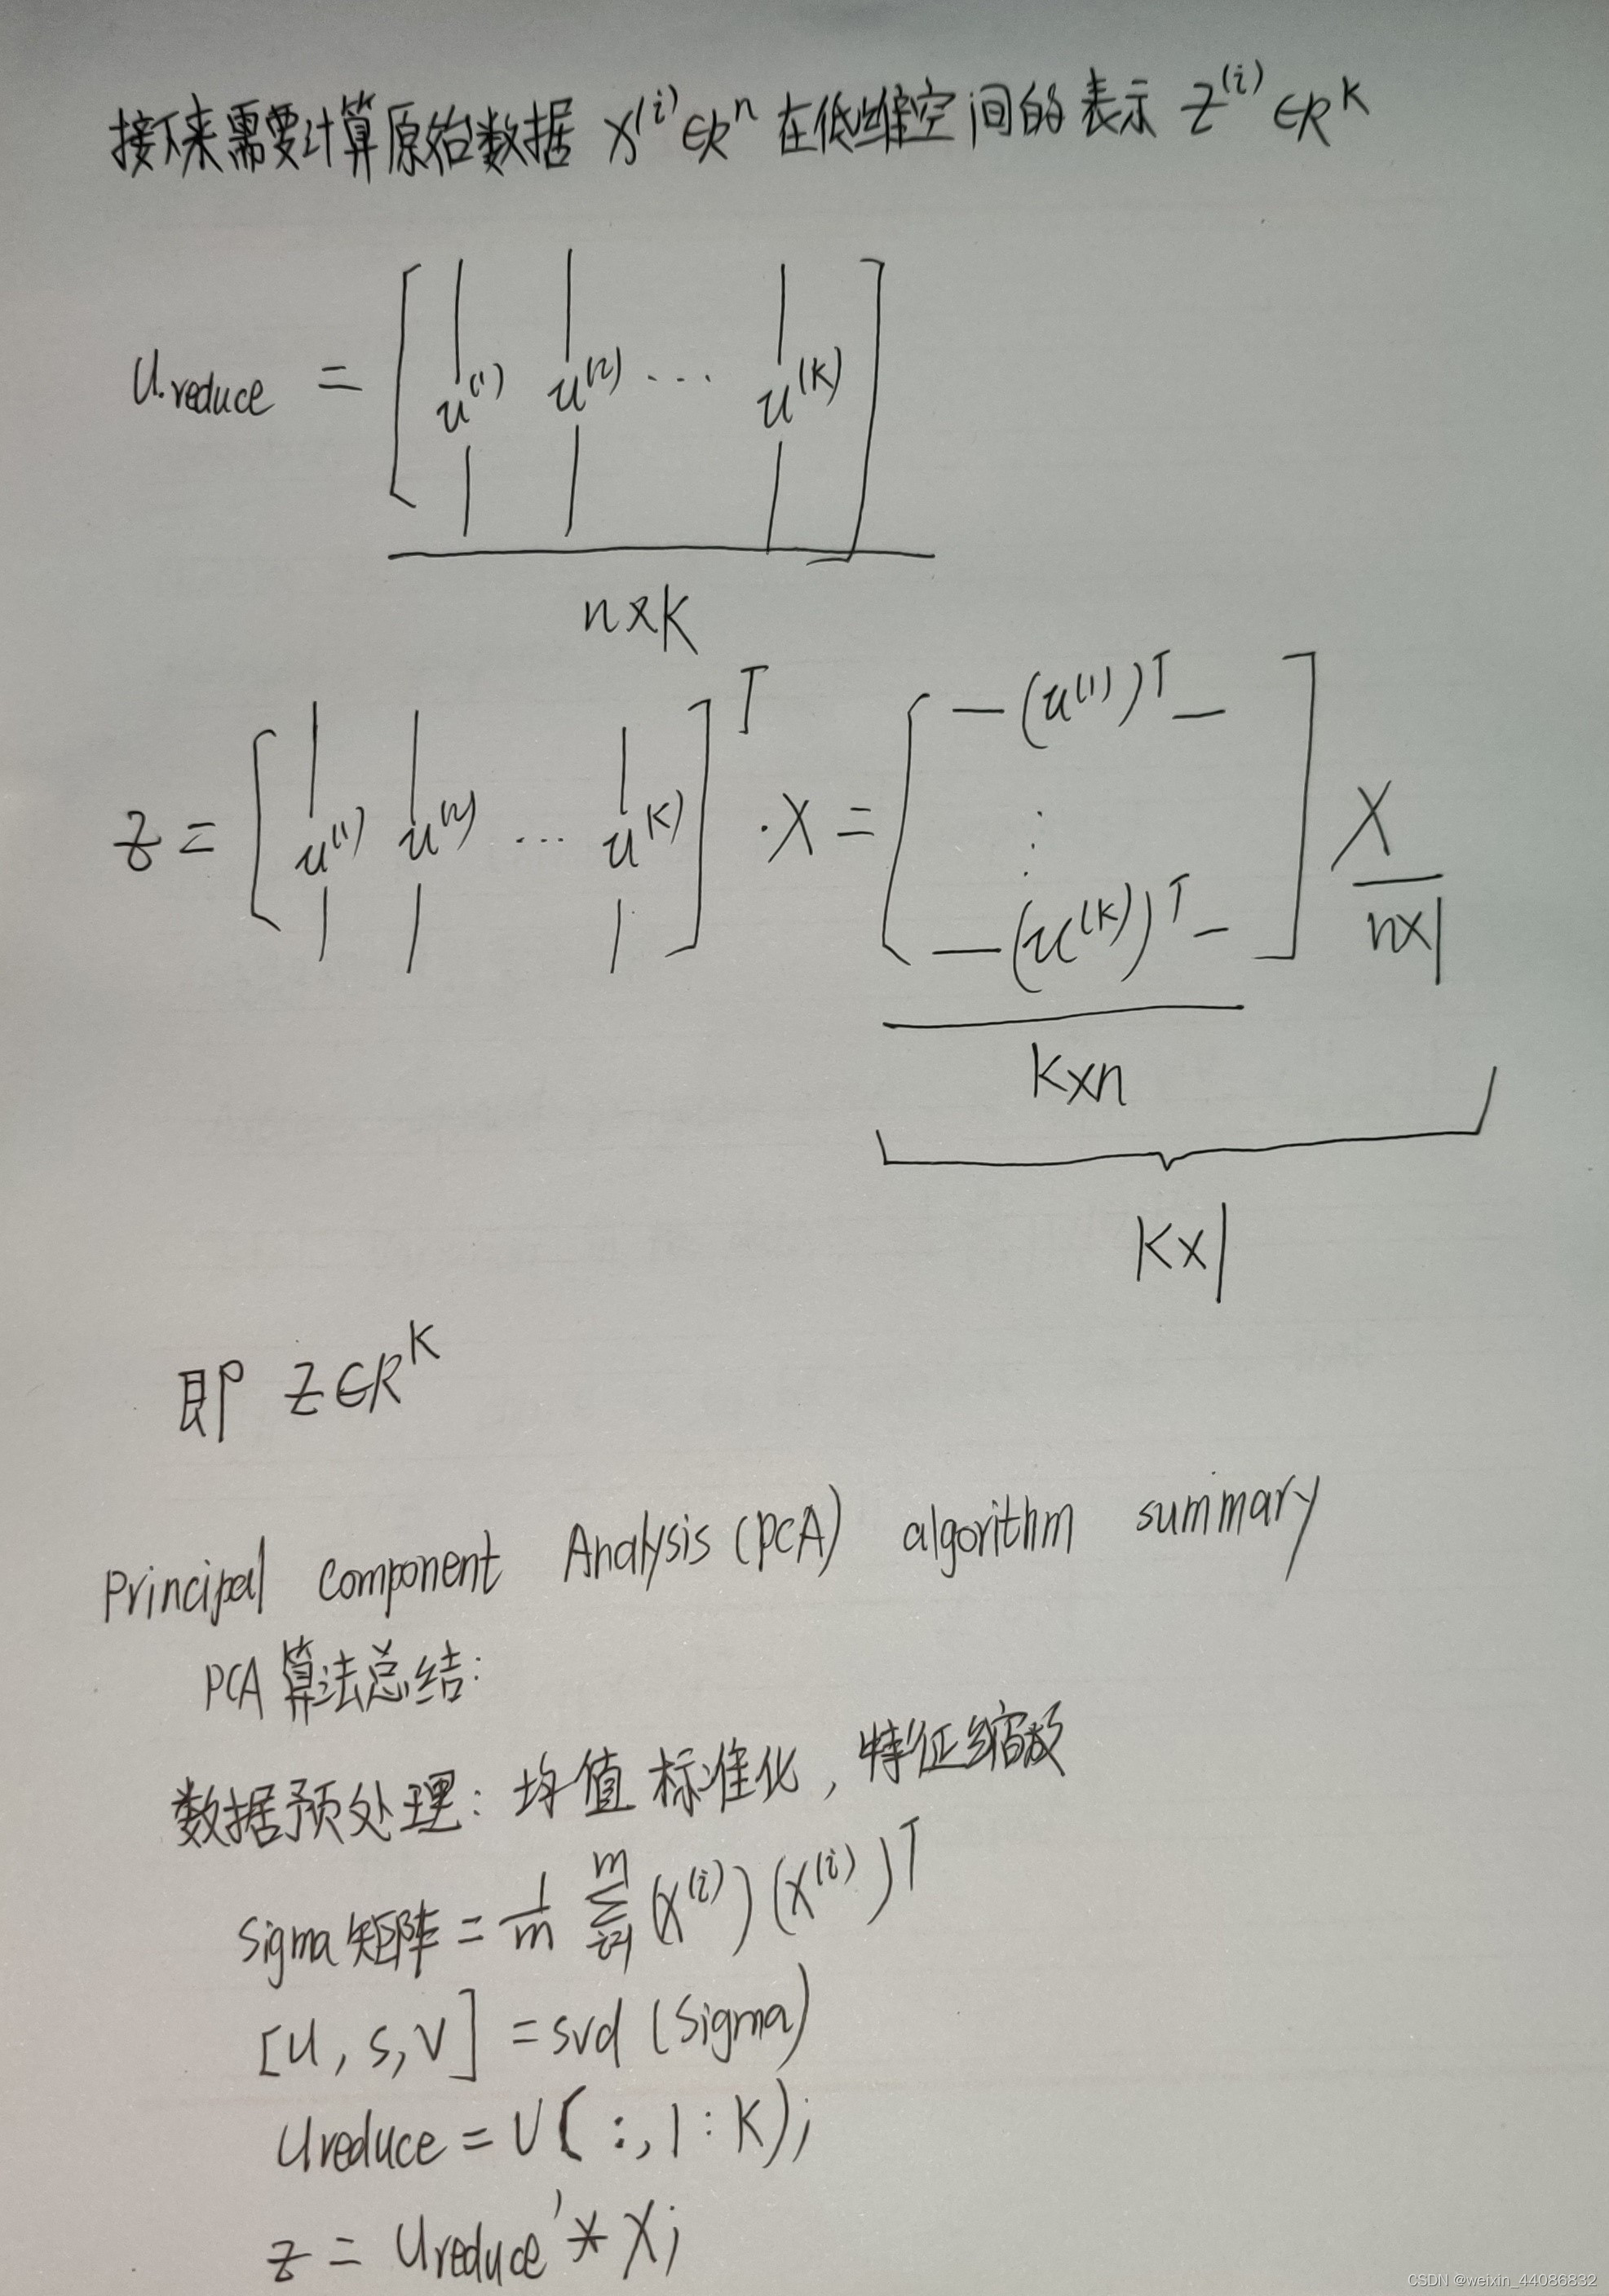 接下来需要计算原始数据 x⁽ⁱ⁾∈Rⁿ 在低维空间的表示 z⁽ⁱ⁾∈Rᴷ
Ureduce = [ | | | u⁽¹⁾ u⁽²⁾ ... u⁽ᴷ⁾ | | | ]
n×K
z = [ | | | u⁽¹⁾ u⁽²⁾ ... u⁽ᴷ⁾ | | | ]ᵀ · X = [ —(u⁽¹⁾)ᵀ— ⋮ —(u⁽ᴷ⁾)ᵀ— ] X
n×1
K×n
K×1
即 z∈Rᴷ
Principal Component Analysis (PCA) algorithm summary
PCA 算法总结:
数据预处理: 均值标准化, 特征缩放
Sigma矩阵 = 1/m Σᵢ₌₁ᵐ (x⁽ⁱ⁾)(x⁽ⁱ⁾)ᵀ
[U, S, V] = svd(Sigma)
Ureduce = U(:, 1:K);
z = Ureduce' * X;
CSDN @weixin_44086832